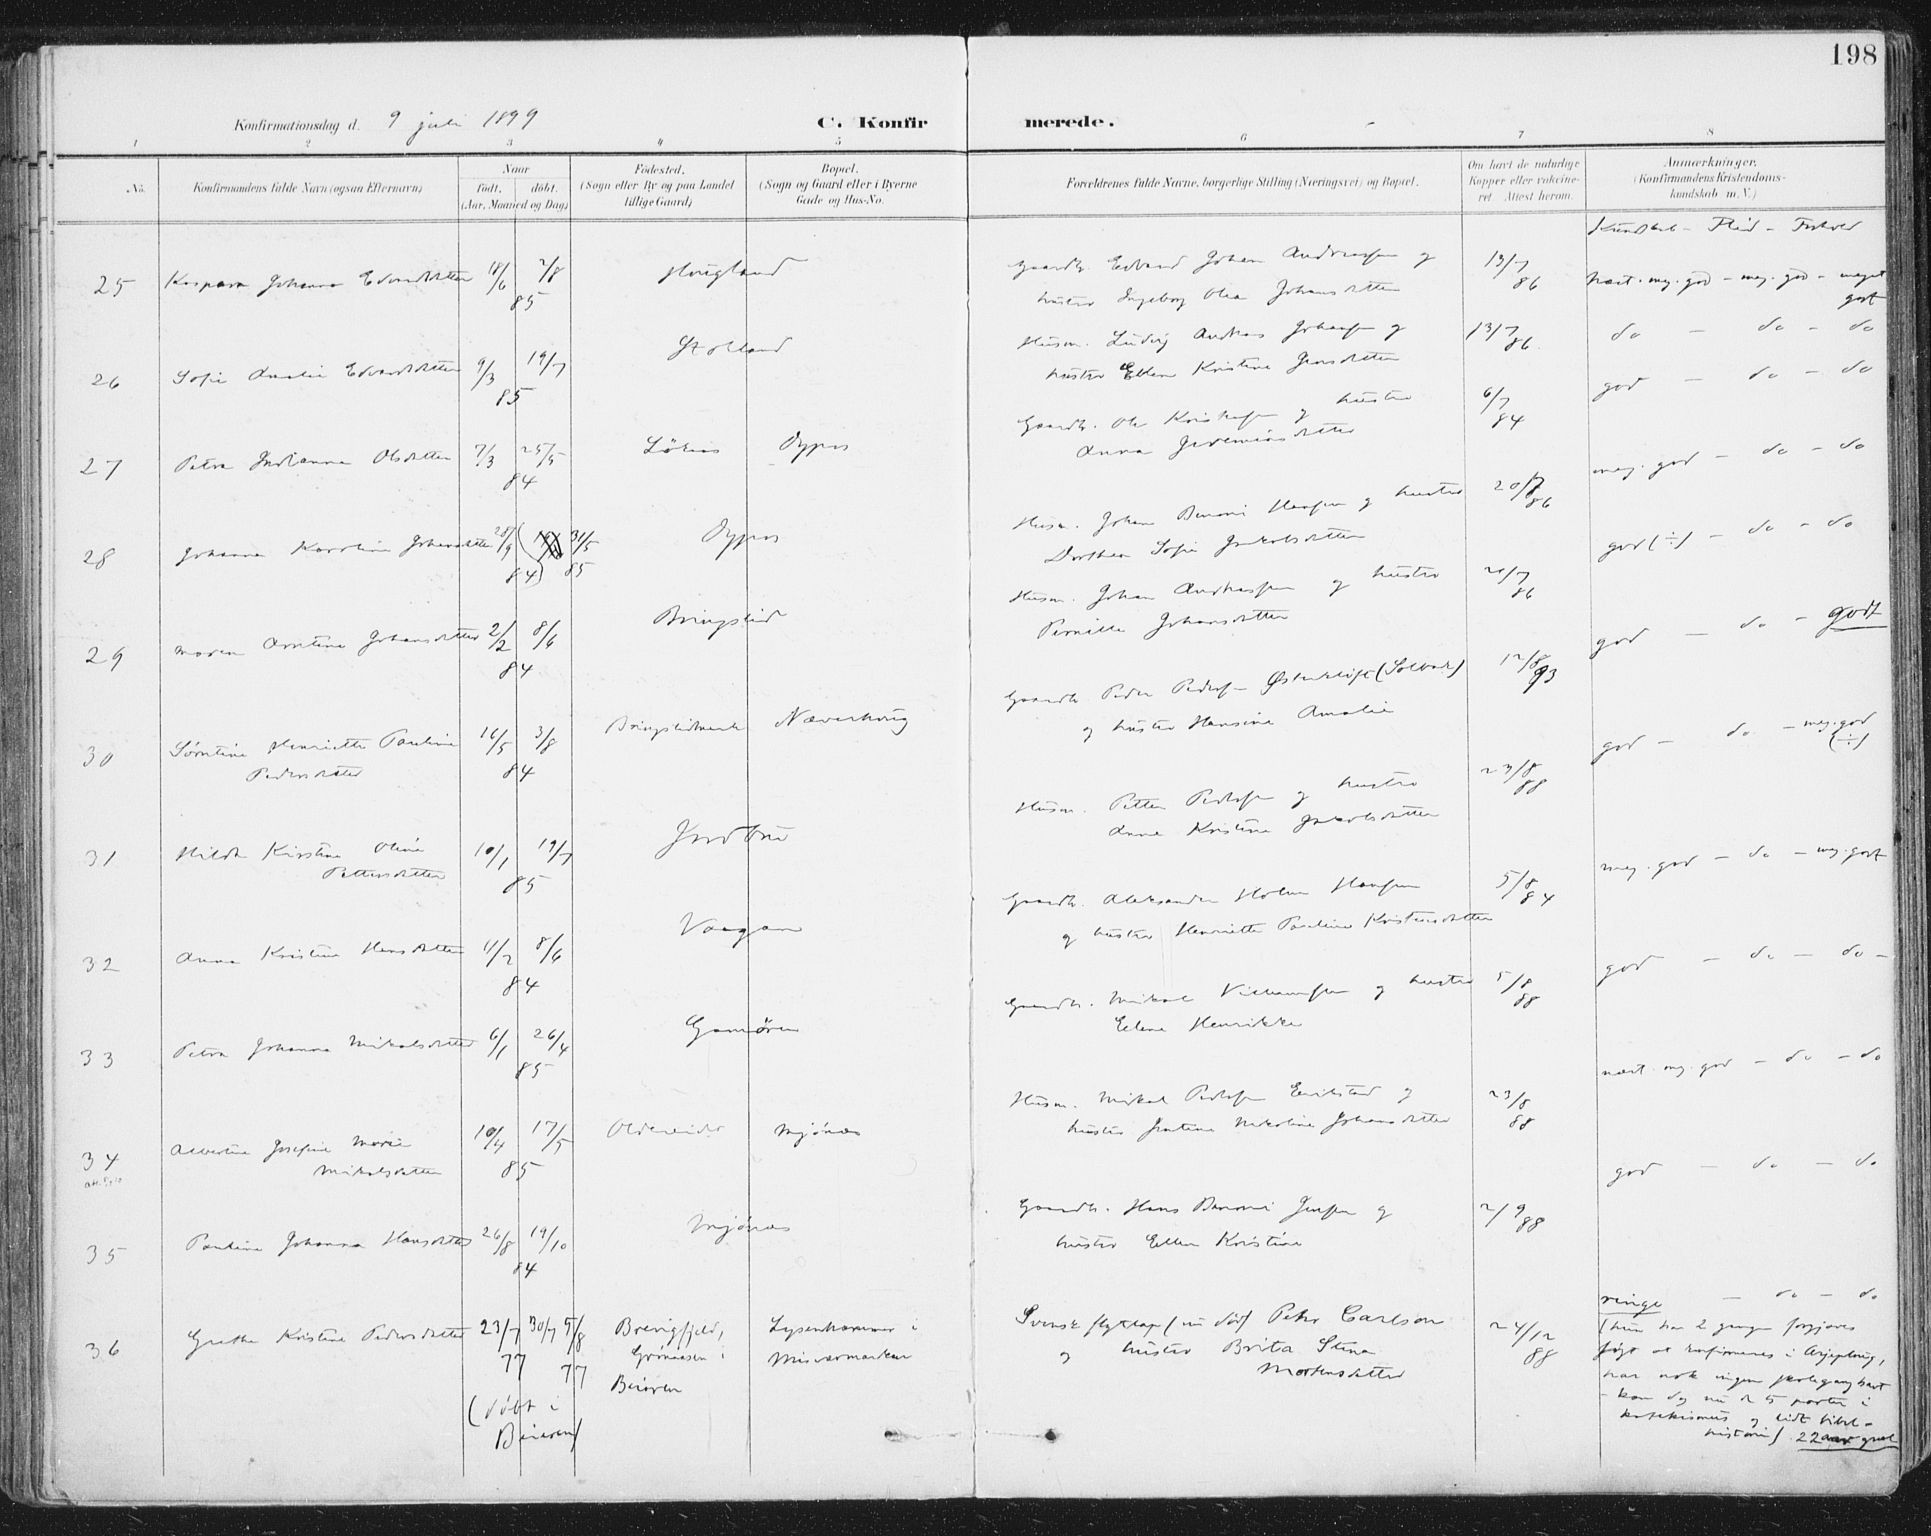 198
Konfirmationsdag d. 9 juli 1899 C. Konfirmerede.
1 2 3 4 5 6 7 8
No. Konfirmandens fulde Navn (ogsaa Efternavn) Naar født. døbt. (Aar, Maaned og Dag) Födested. (Sogn eller By og paa Landet tillige Gaard) Bopæl. (Sogn og Gaard eller i Byerne Gade og Hus-No. Forældrenes fulde Navne, borgerlige Stilling (Næringsvei) og Bopæl. Om havt de naturlige Kopper eller vakcineret. Attest herom. Anmærkninger, (Konfirmandens Kristendomskundskab m. V.)
Kundskab - Flid - Forhold
25 Kaspara Johanna Edvardsdatter 18/6 2/8 85 Hougland Gaardb. Edvard Johan Andreassen og 13/7 86 næst. meg. god - meg. god - meget godt
hustru Ingeborg Olea Johansdatter
26 Sofie Amalie Edvardsdatter 9/3 19/7 85 Stolland Husm. Ludvig Andreas Johansen og 13/7 86. do - do - do
hustru Ellen Kristine Jensdatter
27 Petra Indianna Olsdatter 7/3 25/5 84 Løkaas Oppos Gaardb. Ole Kristofersen og hustru 6/7 84 god - do - do
Anna Jeremiasdatter
28 Johanna Karoline Johansdatter 28/9 84) 31/5 85 Oppos Husm. Johan Benoni Hansen og hustru 20/7 86 meg. god - do - do
Dorthea Sofie Jakobsdatter
29 Maren Arntine Johansdatter 2/2 8/6 84 Bringslid Husm. Johan Andreassen og hustru 20/7 86 god (÷) - do - do
Pernille Johansdatter
30 Sørntine Henriette Pauline 16/5 3/8 84 Bringslidmark Næverhoug Gaardb. Peder Pedersen Østerkløft (Solbak) 12/8 93 god - do - godt
Pedersdatter og hustru Hansine Amalie
31 Hilda Kirstine Oline 10/1 19/7 85 Husm. Petter Pedersen og hustru 23/8 88 god - do - meg. god (÷)
Pettersdatter Anne Kristine Jakobsdatter
32 Anna Kristine Hansdatter 11/2 8/6 84 Vaagan Gaardb. Aleksander Holm Hansen 5/8 84 meg. god - do - meg. godt
og hustru Henriette Pauline Kristensdatter
33 Petra Johanna Mikalsdatter 6/1 26/4 85 Gamøren Gaardb. Mikal Villumsen og hustru 5/8 88 god - do - do -
Elene Henrikke
34 Albertine Josefine Marie 10/4 17/5 85 Oldereidet Mjönes Husm. Mikal Pedersen Erikstad og 23/8 88 næst. meg. god - do - do
Mikalsdatter hustru Jentine Nikoline Johansdatter
35 Pauline Johanna Hansdatter 26/8 19/10 84 Mjönes Gaardb. Hans Benoni Jensen og 2/9 88 god - do - do
hustru Ellen Kristine
36 Grethe Kristine Pedersdatter 23/7 77 30/7 5/8 77 Brevigfjeld, Lysenhammer i Svensk flytlap (nu død) Petter Carlson 24/12 88 ringe - do - do
Grönaasen i Misværmarken og hustru Brita Stina (hun har 2 gange forgjæves
Beiaren Mortensdatter søgt at konfirmeres i Arjeploug,
(döbt i Beiaren) har nok ingen skolegang havt
- kan dog nu de 5 parter i
katekismus og lidt bibel-
historie) 22 aar gml